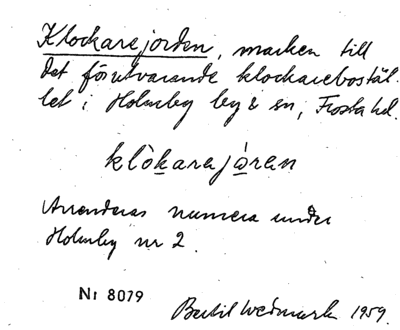 Klockarejorden, marken till
det förutvarande klockarebostäl-
let i Holmby by & sn, Frosta hd.
klòkarejòren
Arrenderas numera under
Holmby nr 2.
Nr 8079
Bertil Wedmark 1959.